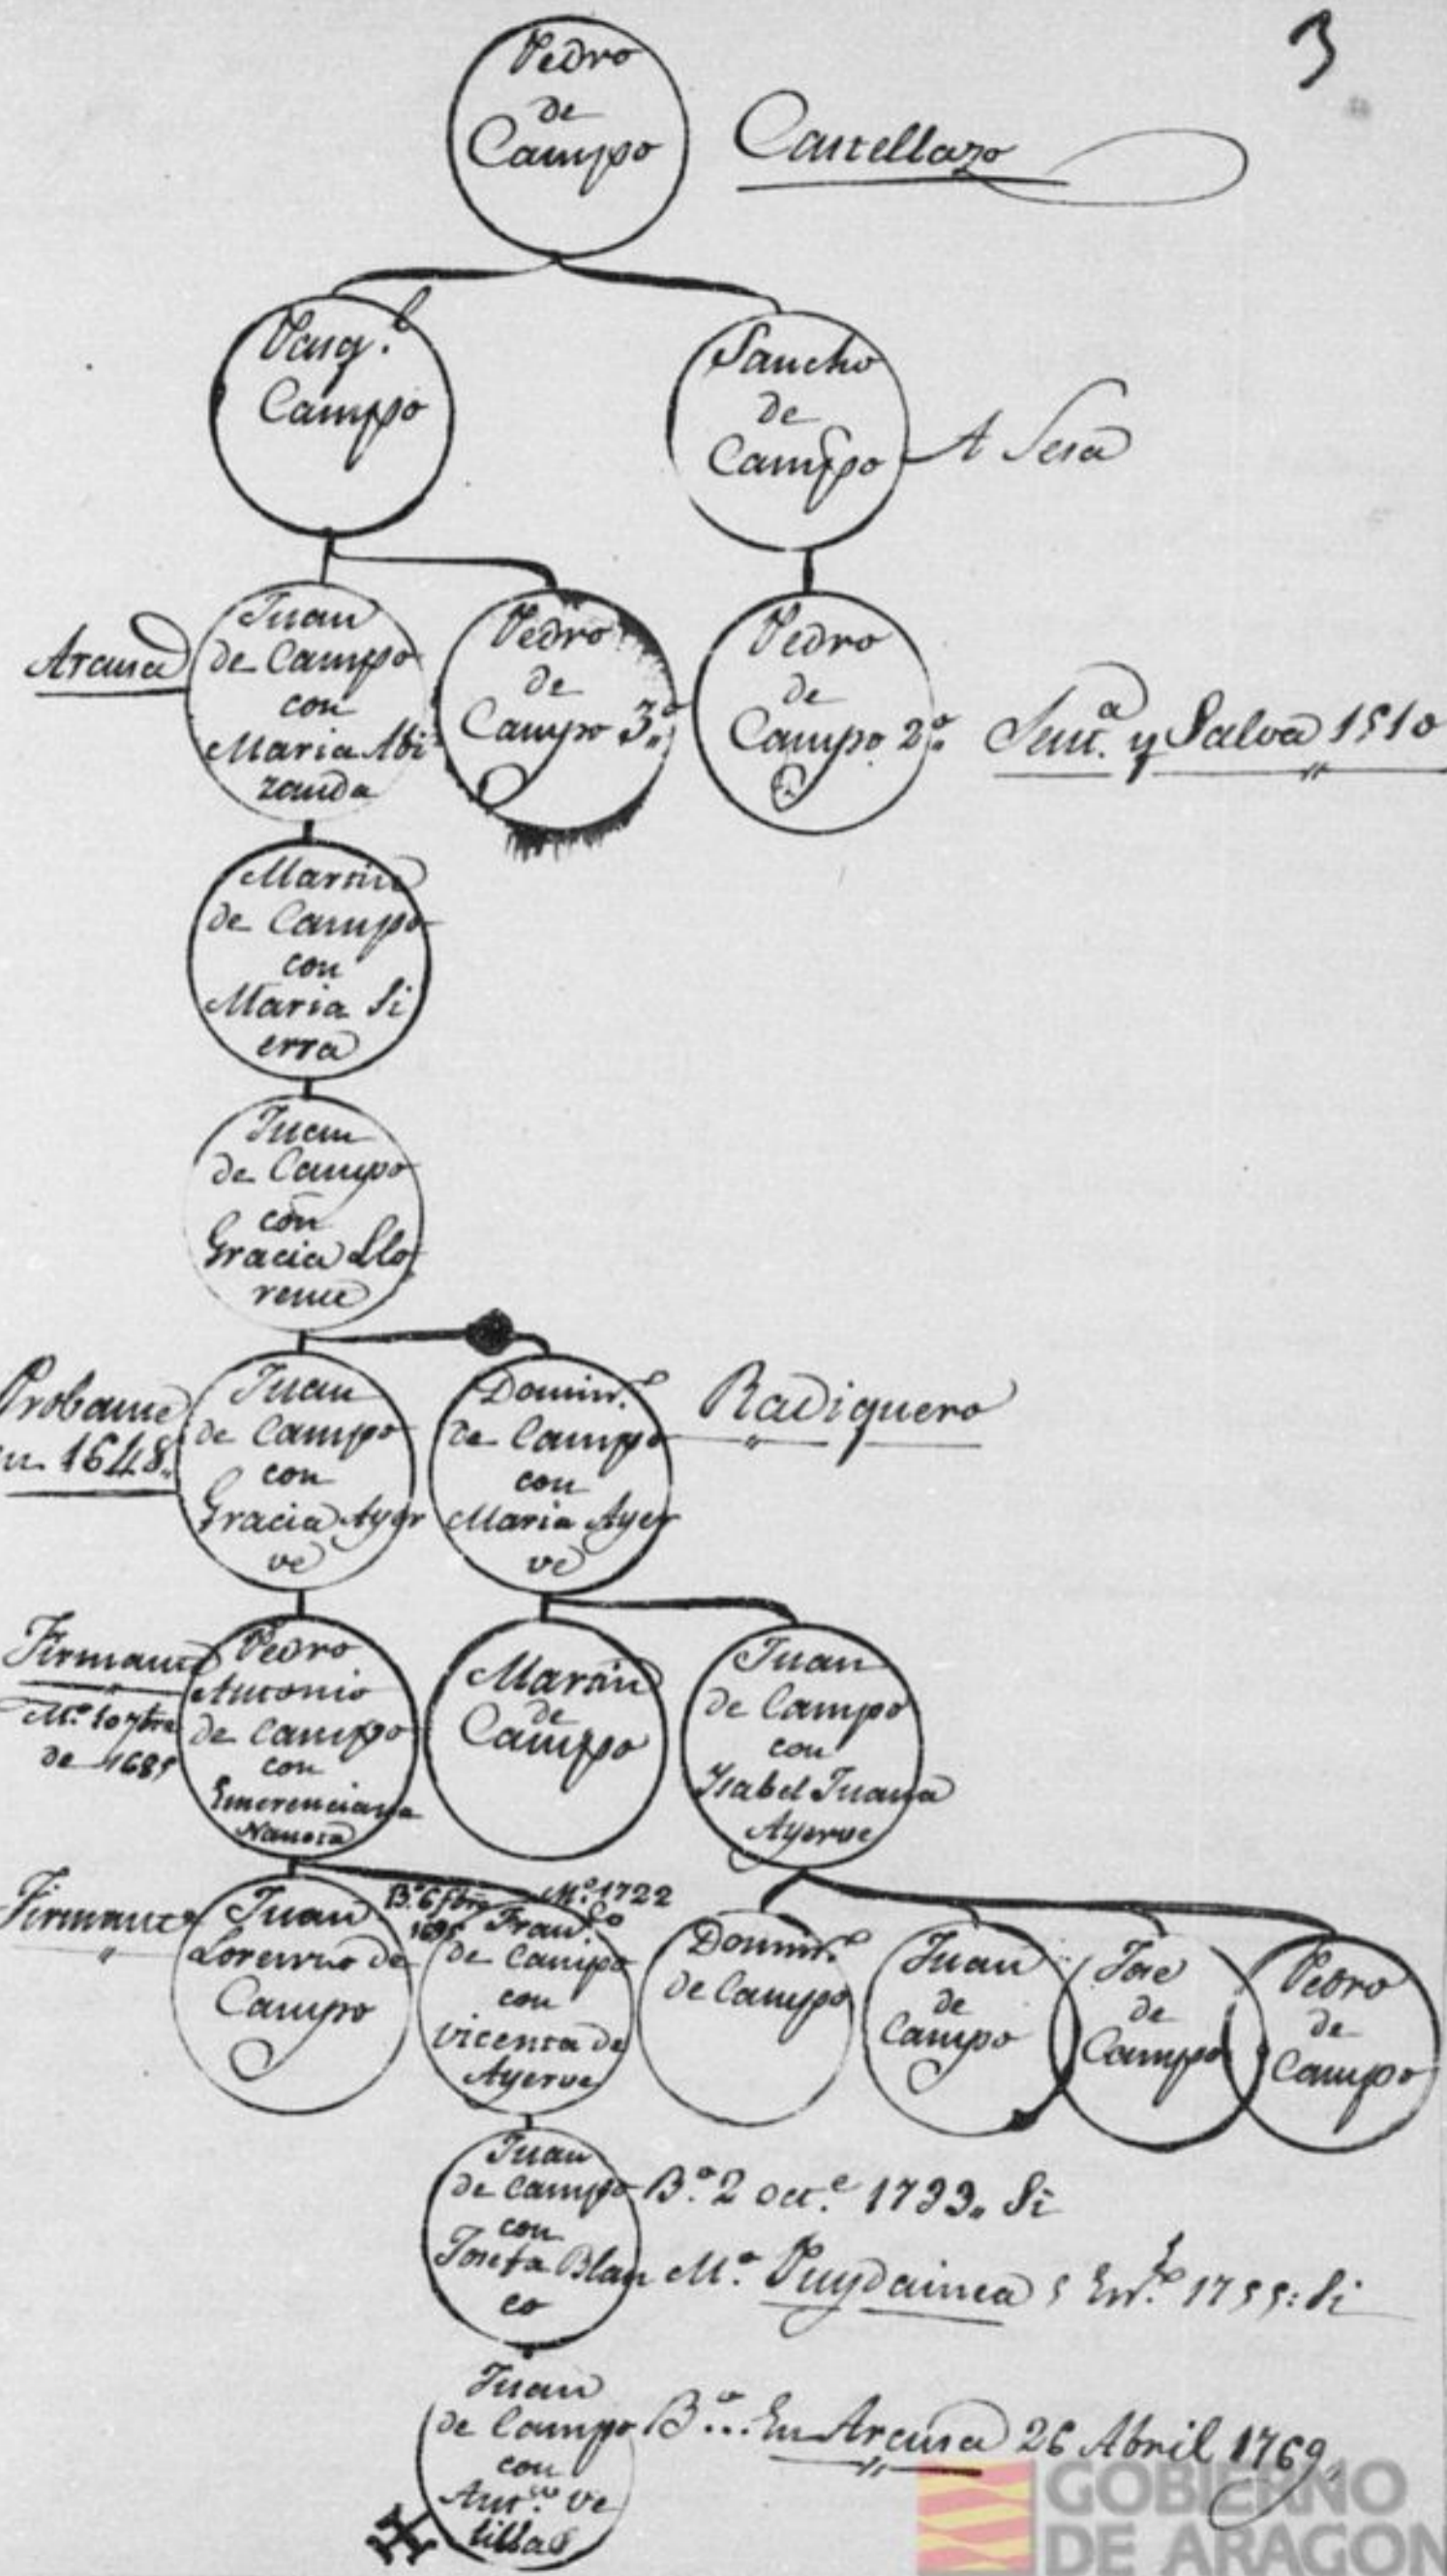 3
Pedro
de
Campo
Castellazo
Pasq.l
Campo
Sancho
de
Campo
A Sesa
Arcusa
Juan
de Campo
con
Maria Abi
zanda
Pedro
de
Campo 3.º
Pedro
de
Campo 2.º
Sent.a y Salva 1510
Martin
de Campo
con
Maria Si
erra
Juan
de Campo
con
Gracia Llo
rente
Probante
en 1648
Juan
de Campo
con
Gracia Ayer
ve
Domin.o
de Campo
con
Maria Ayer
ve
Radiquero
Firmante
M.º 10 7bre
de 1685
Pedro
Antonio
de Campo
con
Emerenciana
Martin
de
Campo
Juan
de Campo
con
Ysabel Juana
Ayerve
Firmante
Juan
Lorenzo de
Campo
B.º 6
M.º 1722
Fran.co
de Campo
con
Vicenta de
Ayerve
Domin.o
de Campo
Juan
de
Campo
Jose
de
Campo
Pedro
de
Campo
Juan
de Campo
con
Josefa Blan
co
B.º 2 oct.e 1733. Si
M.º Puydainca 5 En.º 1755: Si
Juan
de Campo
con
Ant.a Ve
tillas
B.º... En Arcusa 26 Abril 1769
GOBIERNO
DE ARAGON